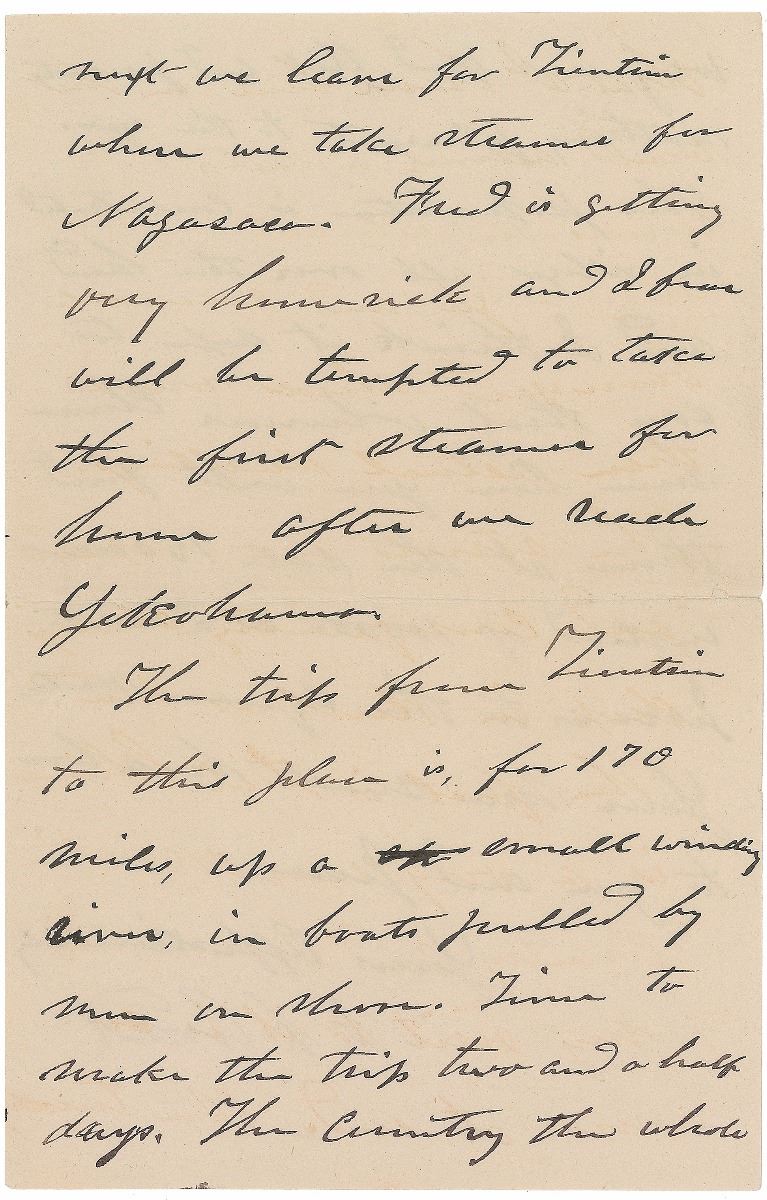 next we leave for Tientsin
where we take steamer for
Nagasaca. Fred is getting
very homesick and I fear
will be tempted to take
the first steamer for
home after we reach
Yekohama.
The trip from Tientsin
to this place is, for 170
miles, up a small winding
river, in boats pulled by
men on shore. Time to
make the trip two and a half
days. The Country the whole